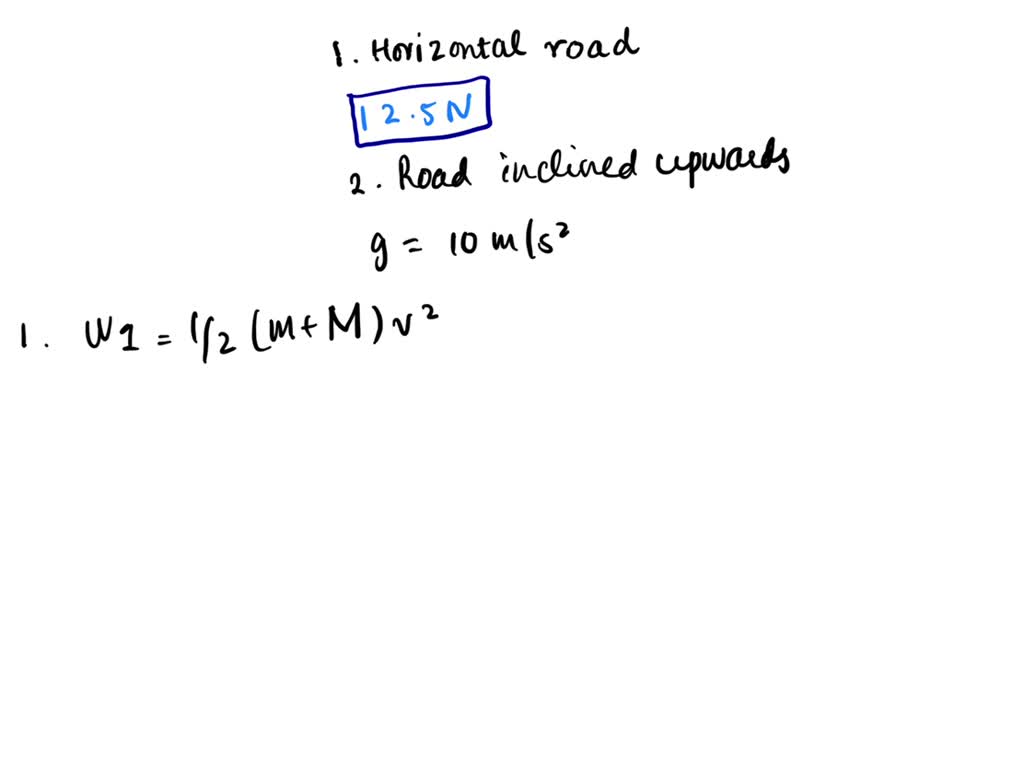 1. Horizontal road
12.5N
2. Road inclined upwards
g = 10 m/s²
1. W1 = 1/2 (m+M) v²